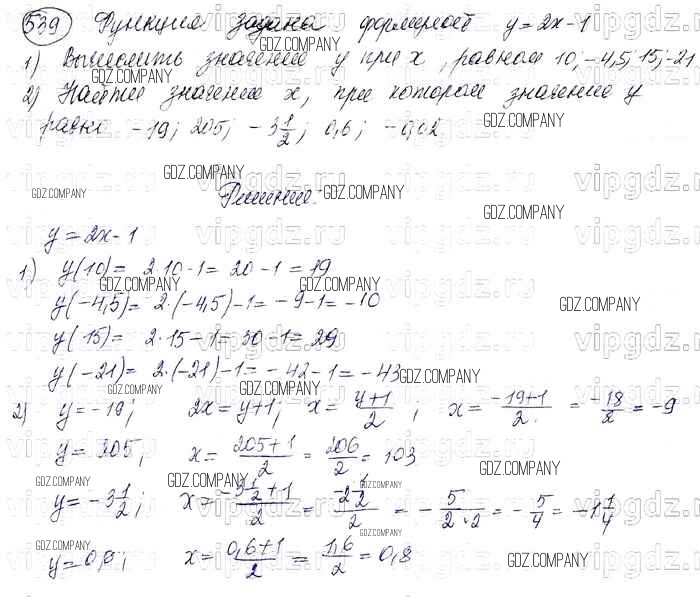 539 Функция задана формулой y = 2x - 1
1) Вычислить значение y при x, равном 10; -4,5; 15; -21
2) Найти значение x, при котором значение y
равно -19; 205; -3 1/2; 0,6; -0,02.
Решение:
y = 2x - 1
1) y(10) = 2·10 - 1 = 20 - 1 = 19
y(-4,5) = 2·(-4,5) - 1 = -9 - 1 = -10
y(15) = 2·15 - 1 = 30 - 1 = 29
y(-21) = 2·(-21) - 1 = -42 - 1 = -43
2) y = -19; 2x = y+1; x = (y+1)/2; x = (-19+1)/2 = -18/2 = -9
y = 205; x = (205+1)/2 = 206/2 = 103
y = -3 1/2; x = (-3 1/2 + 1)/2 = (-2 1/2)/2 = -5/(2·2) = -5/4 = -1 1/4
y = 0,6; x = (0,6+1)/2 = 1,6/2 = 0,8
GDZ.COMPANY
vipgdz.ru